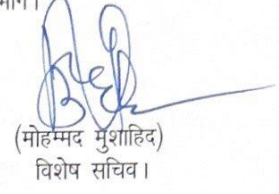 (मोहम्मद मुशाहिद)
विशेष सचिव।